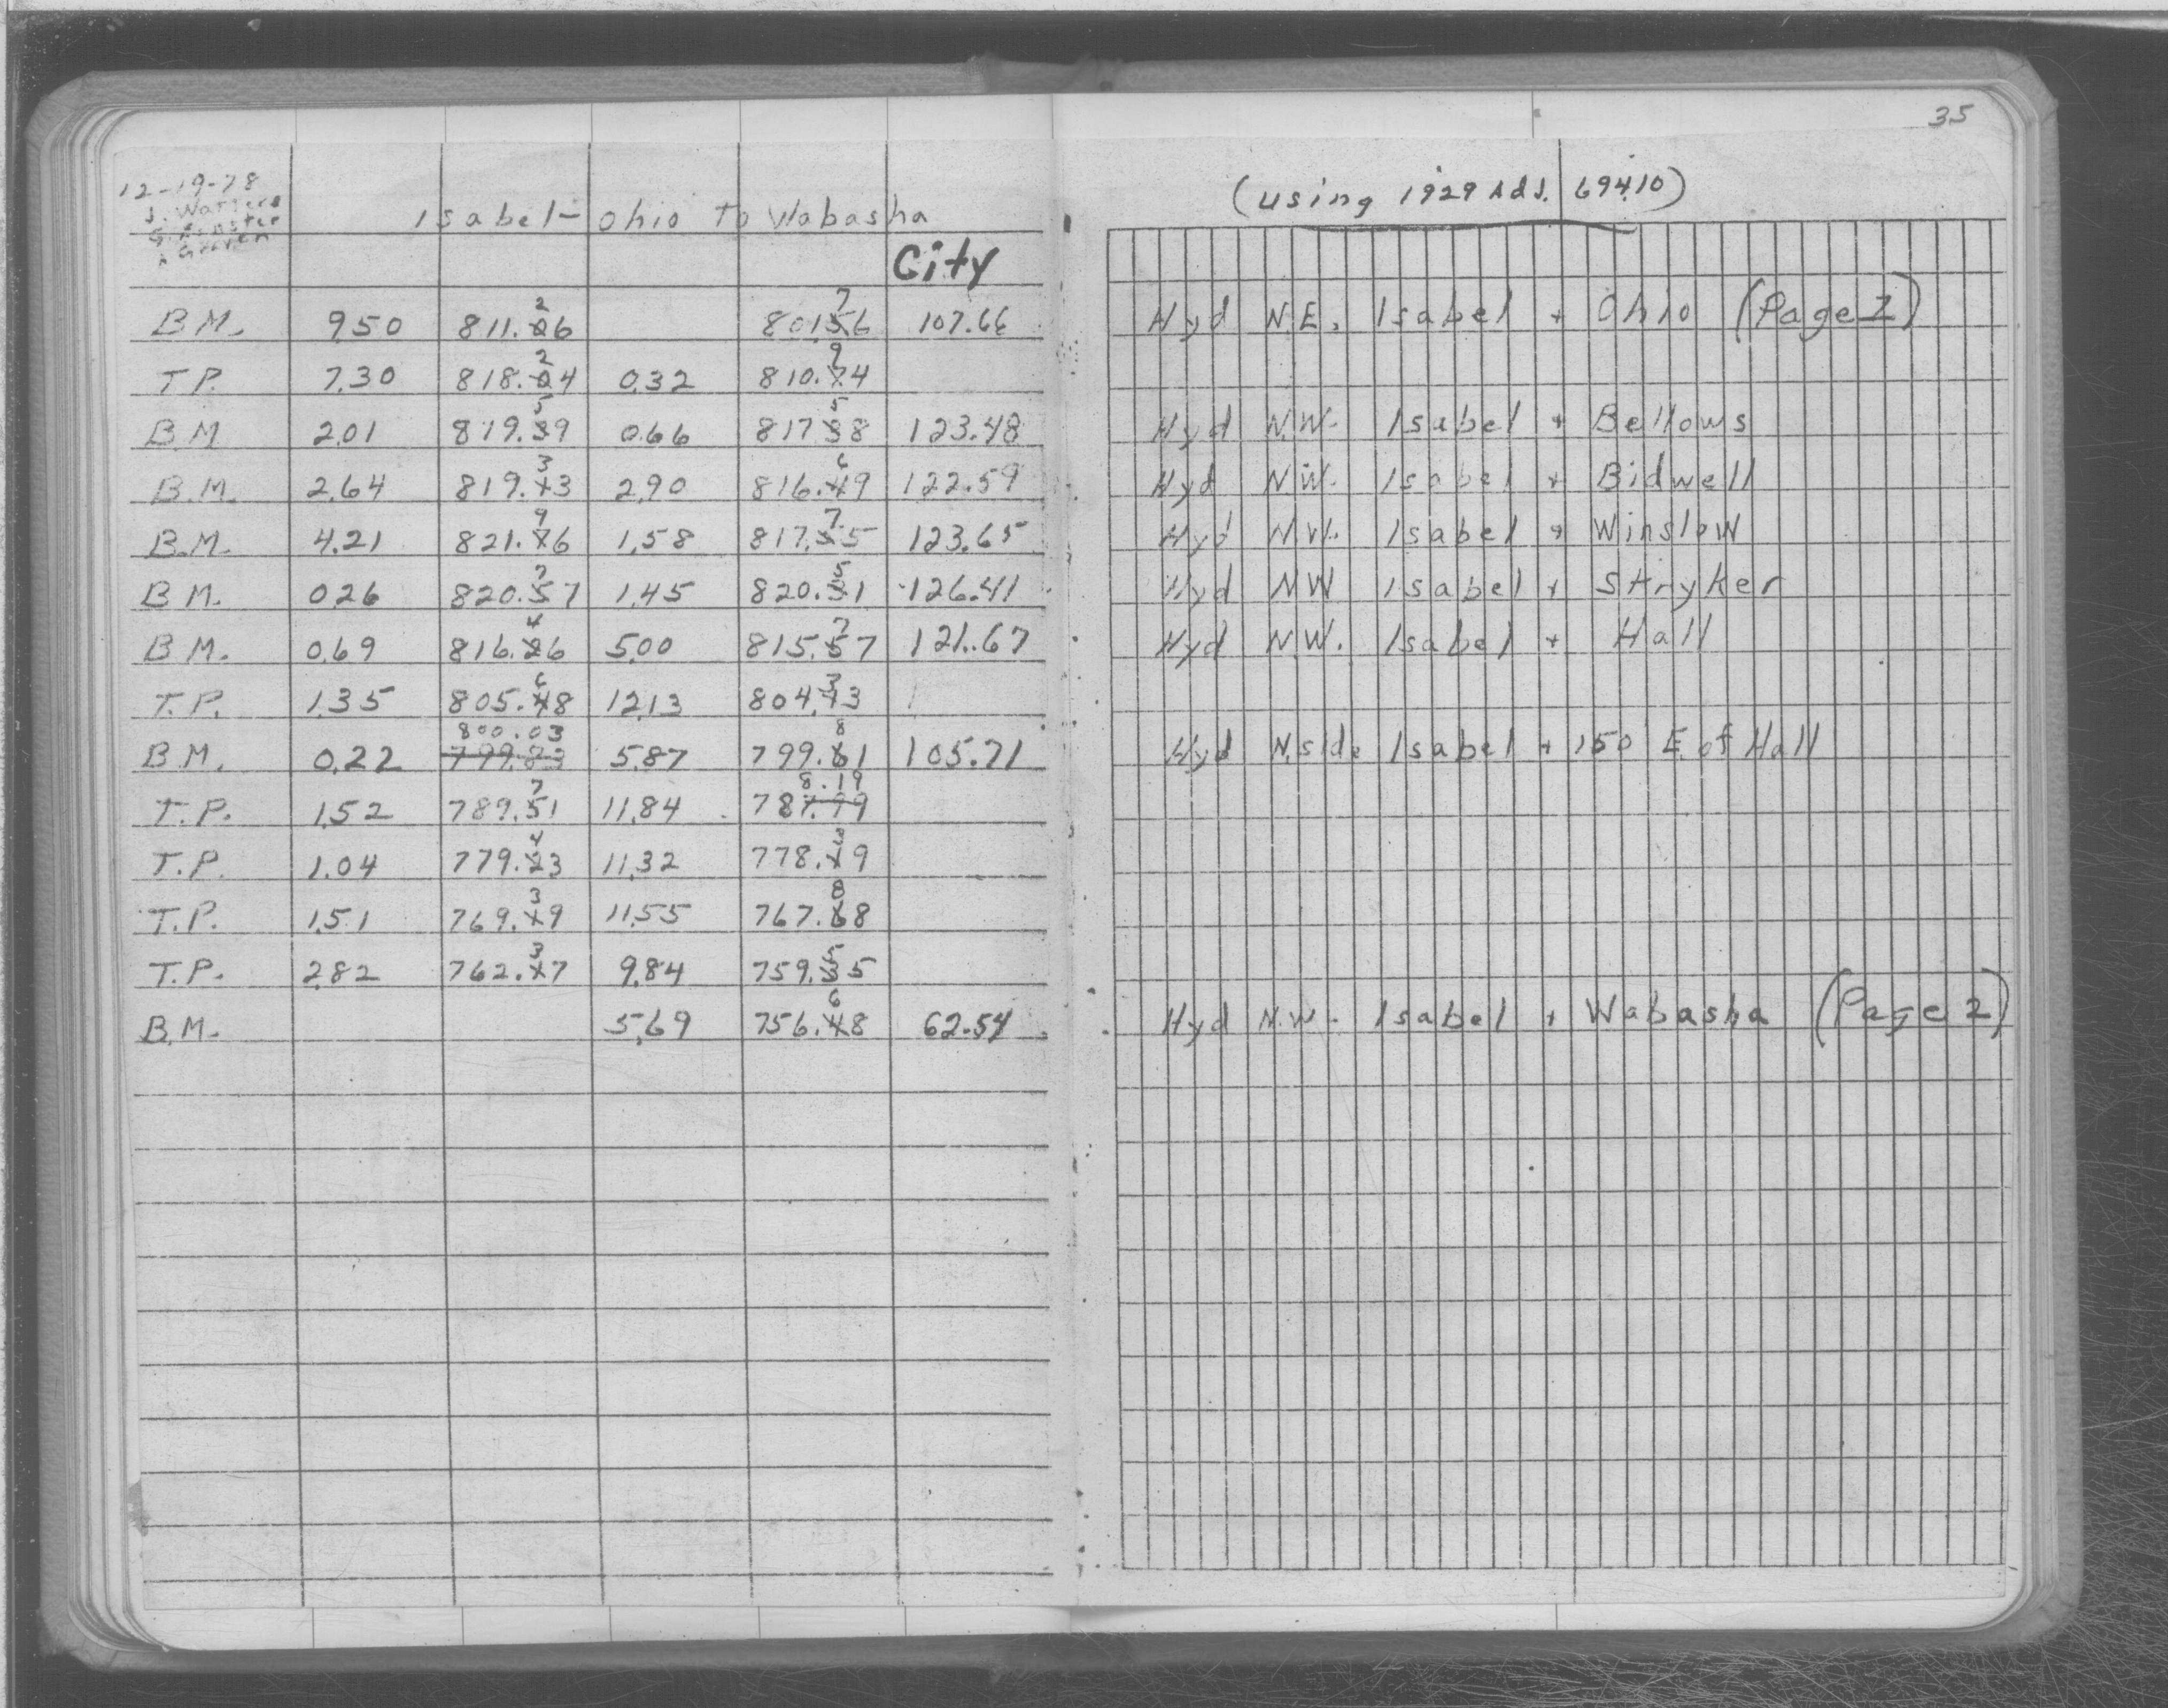 35
12-19-78
Isabel - Ohio to Wabasha
(using 1929 Adj. 694.10)
City
B.M. 9.50 811.26 801.76 107.66 Hyd N.E. Isabel + Ohio (Page 2)
T.P. 7.30 818.24 0.32 810.94
B.M. 2.01 819.59 0.66 817.58 123.48 Hyd N.W. Isabel + Bellows
B.M. 2.64 819.33 2.90 816.69 122.59 Hyd N.W. Isabel + Bidwell
B.M. 4.21 821.96 1.58 817.75 123.65 Hyd N.W. Isabel + Winslow
B.M. 0.26 820.77 1.45 820.51 126.41 Hyd NW Isabel + Stryker
B.M. 0.69 816.46 5.00 815.77 121.67 Hyd N.W. Isabel + Hall
T.P. 1.35 805.68 12.13 804.33
B.M. 0.22 800.03 5.87 799.81 105.71 Hyd N.side Isabel + 150' E. of Hall
T.P. 1.52 789.71 11.84 788.19
T.P. 1.04 779.43 11.32 778.39
T.P. 1.51 769.39 11.55 767.88
T.P. 2.82 762.37 9.84 759.55
B.M. 5.69 756.68 62.54 Hyd N.W. Isabel + Wabasha (Page 2)